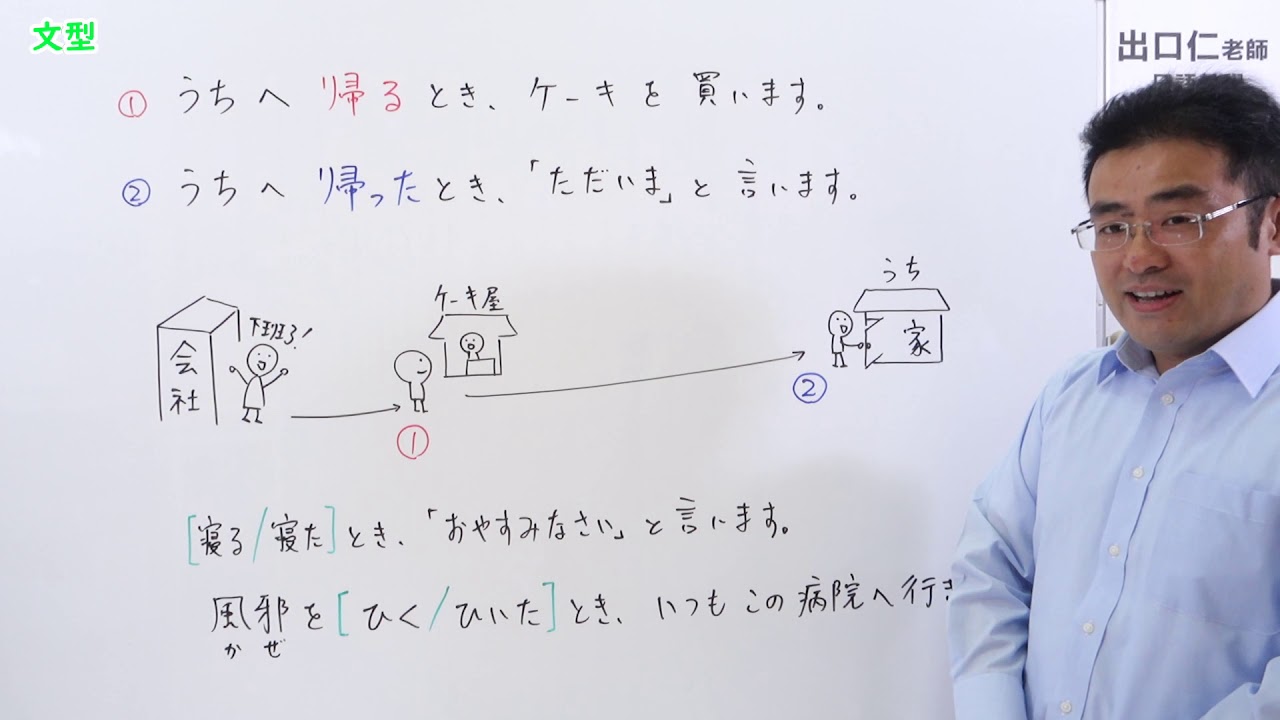 文型
出口仁老師
① うちへ 帰る とき、ケーキを 買います。
② うちへ 帰ったとき、「ただいま」と 言います。
うち
ケーキ屋
下班了!
会社
家
①
②
[寝る/寝た]とき、「おやすみなさい」と 言います。
風邪を[ひく/ひいた]とき、いつも この 病院へ 行き
かぜ